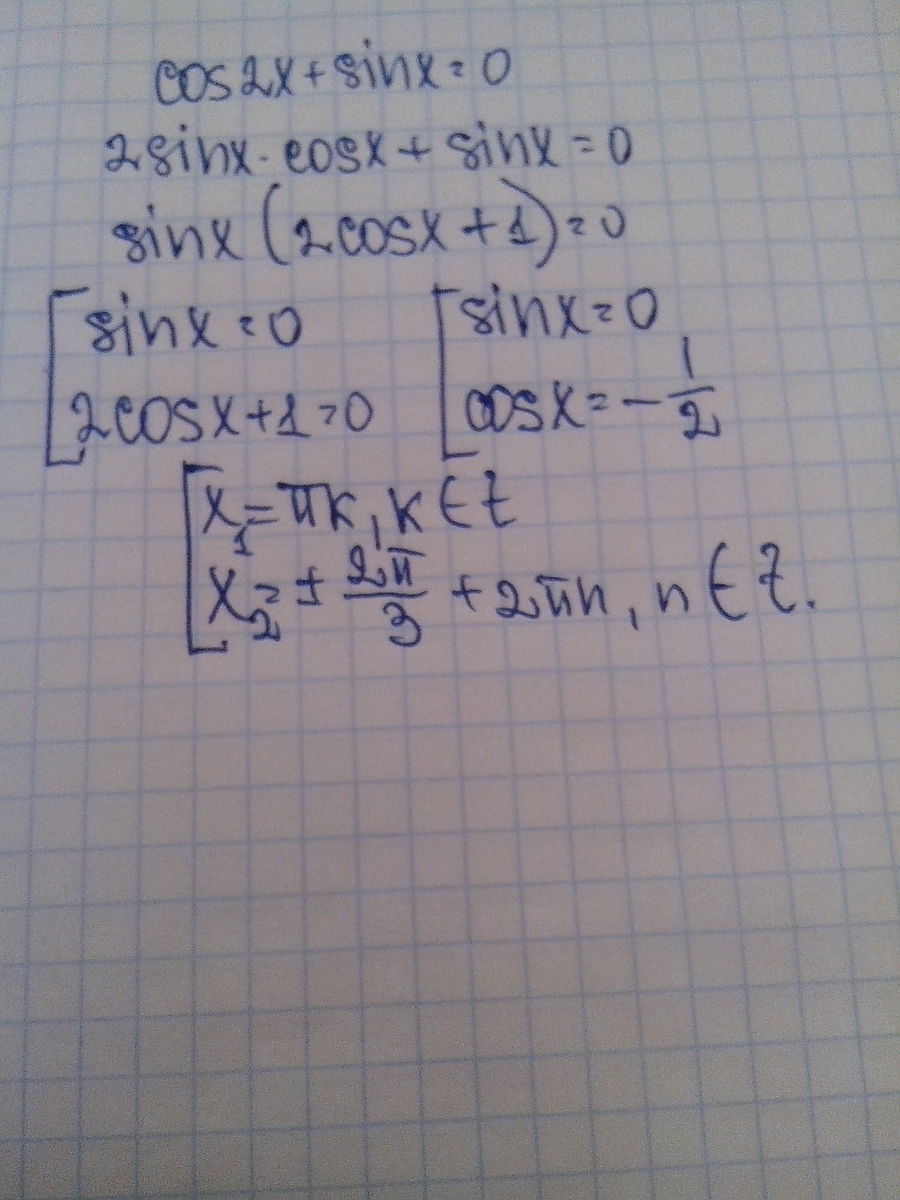 cos2x+sinx=0
2sinx·cosx+sinx=0
sinx(2cosx+1)=0
[sinx=0 [sinx=0
2cosx+1=0 cosx=-1/2
[x₁=πk, k∈Z
x₂=±2π/3+2πn, n∈Z.